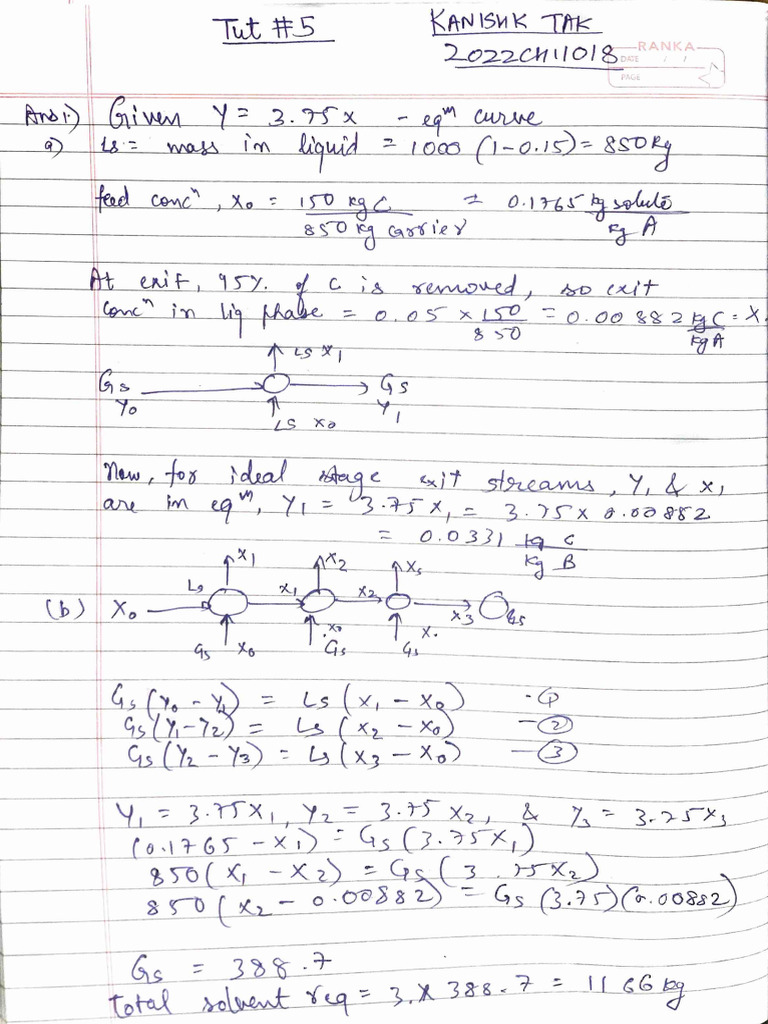 Tut #5
KANISHK TAK
2022CH11018
RANKA
DATE / /
PAGE
Ans1.) Given Y = 3.75x - eqm curve
a) Ls = mass in liquid = 1000 (1-0.15) = 850kg
feed concn, x0 = 150 kg C / 850 kg carrier = 0.1765 kg solute / kg A
At exit, 95% of C is removed, so exit
concn in liq phase = 0.05 × 150/850 = 0.00882 kg C / kg A = X
↑ Ls x1
Gs → Gs
Y0 Y1
↑ Ls x0
Now, for ideal stage exit streams, Y1 & x1
are in eqm, Y1 = 3.75x1 = 3.75 × 0.00882
= 0.0331 kg C / kg B
x1 x2 x3
(b) X0 Ls x1 x2 x3 Gs
Gs x0 x0 Gs Gs x.
Gs (Y0 - Y1) = Ls (x1 - x0) - ①
Gs (Y1 - Y2) = Ls (x2 - x0) - ②
Gs (Y2 - Y3) = Ls (x3 - x0) - ③
Y1 = 3.75X1, Y2 = 3.75 X2, & Y3 = 3.75X3
(0.1765 - X1) = Gs (3.75X1)
850 (X1 - X2) = Gs (3.75X2)
850 (X2 - 0.00882) = Gs (3.75)(0.00882)
Gs = 388.7
total solvent req = 3 × 388.7 = 1166 kg